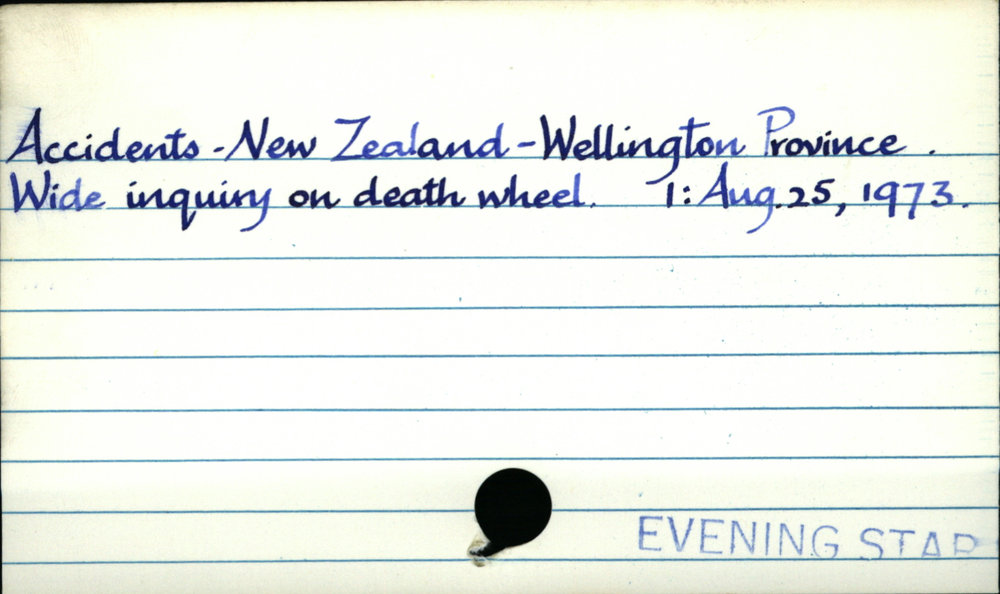 Accidents - New Zealand - Wellington Province .
Wide inquiry on death wheel. 1: Aug. 25, 1973.
EVENING STAR